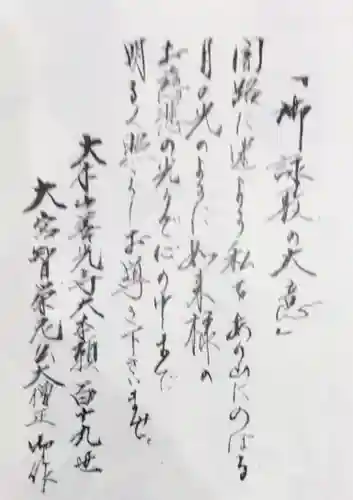 「御詠歌の大意」
闇路に迷よう私もあの山にのぼる
月の光のように如来様の
お慈悲の光りぞ心の中まで
明るく照らしお導き下さいませ。
大本山善光寺大本願 百十九世
大宮智栄尼公大僧正 御作